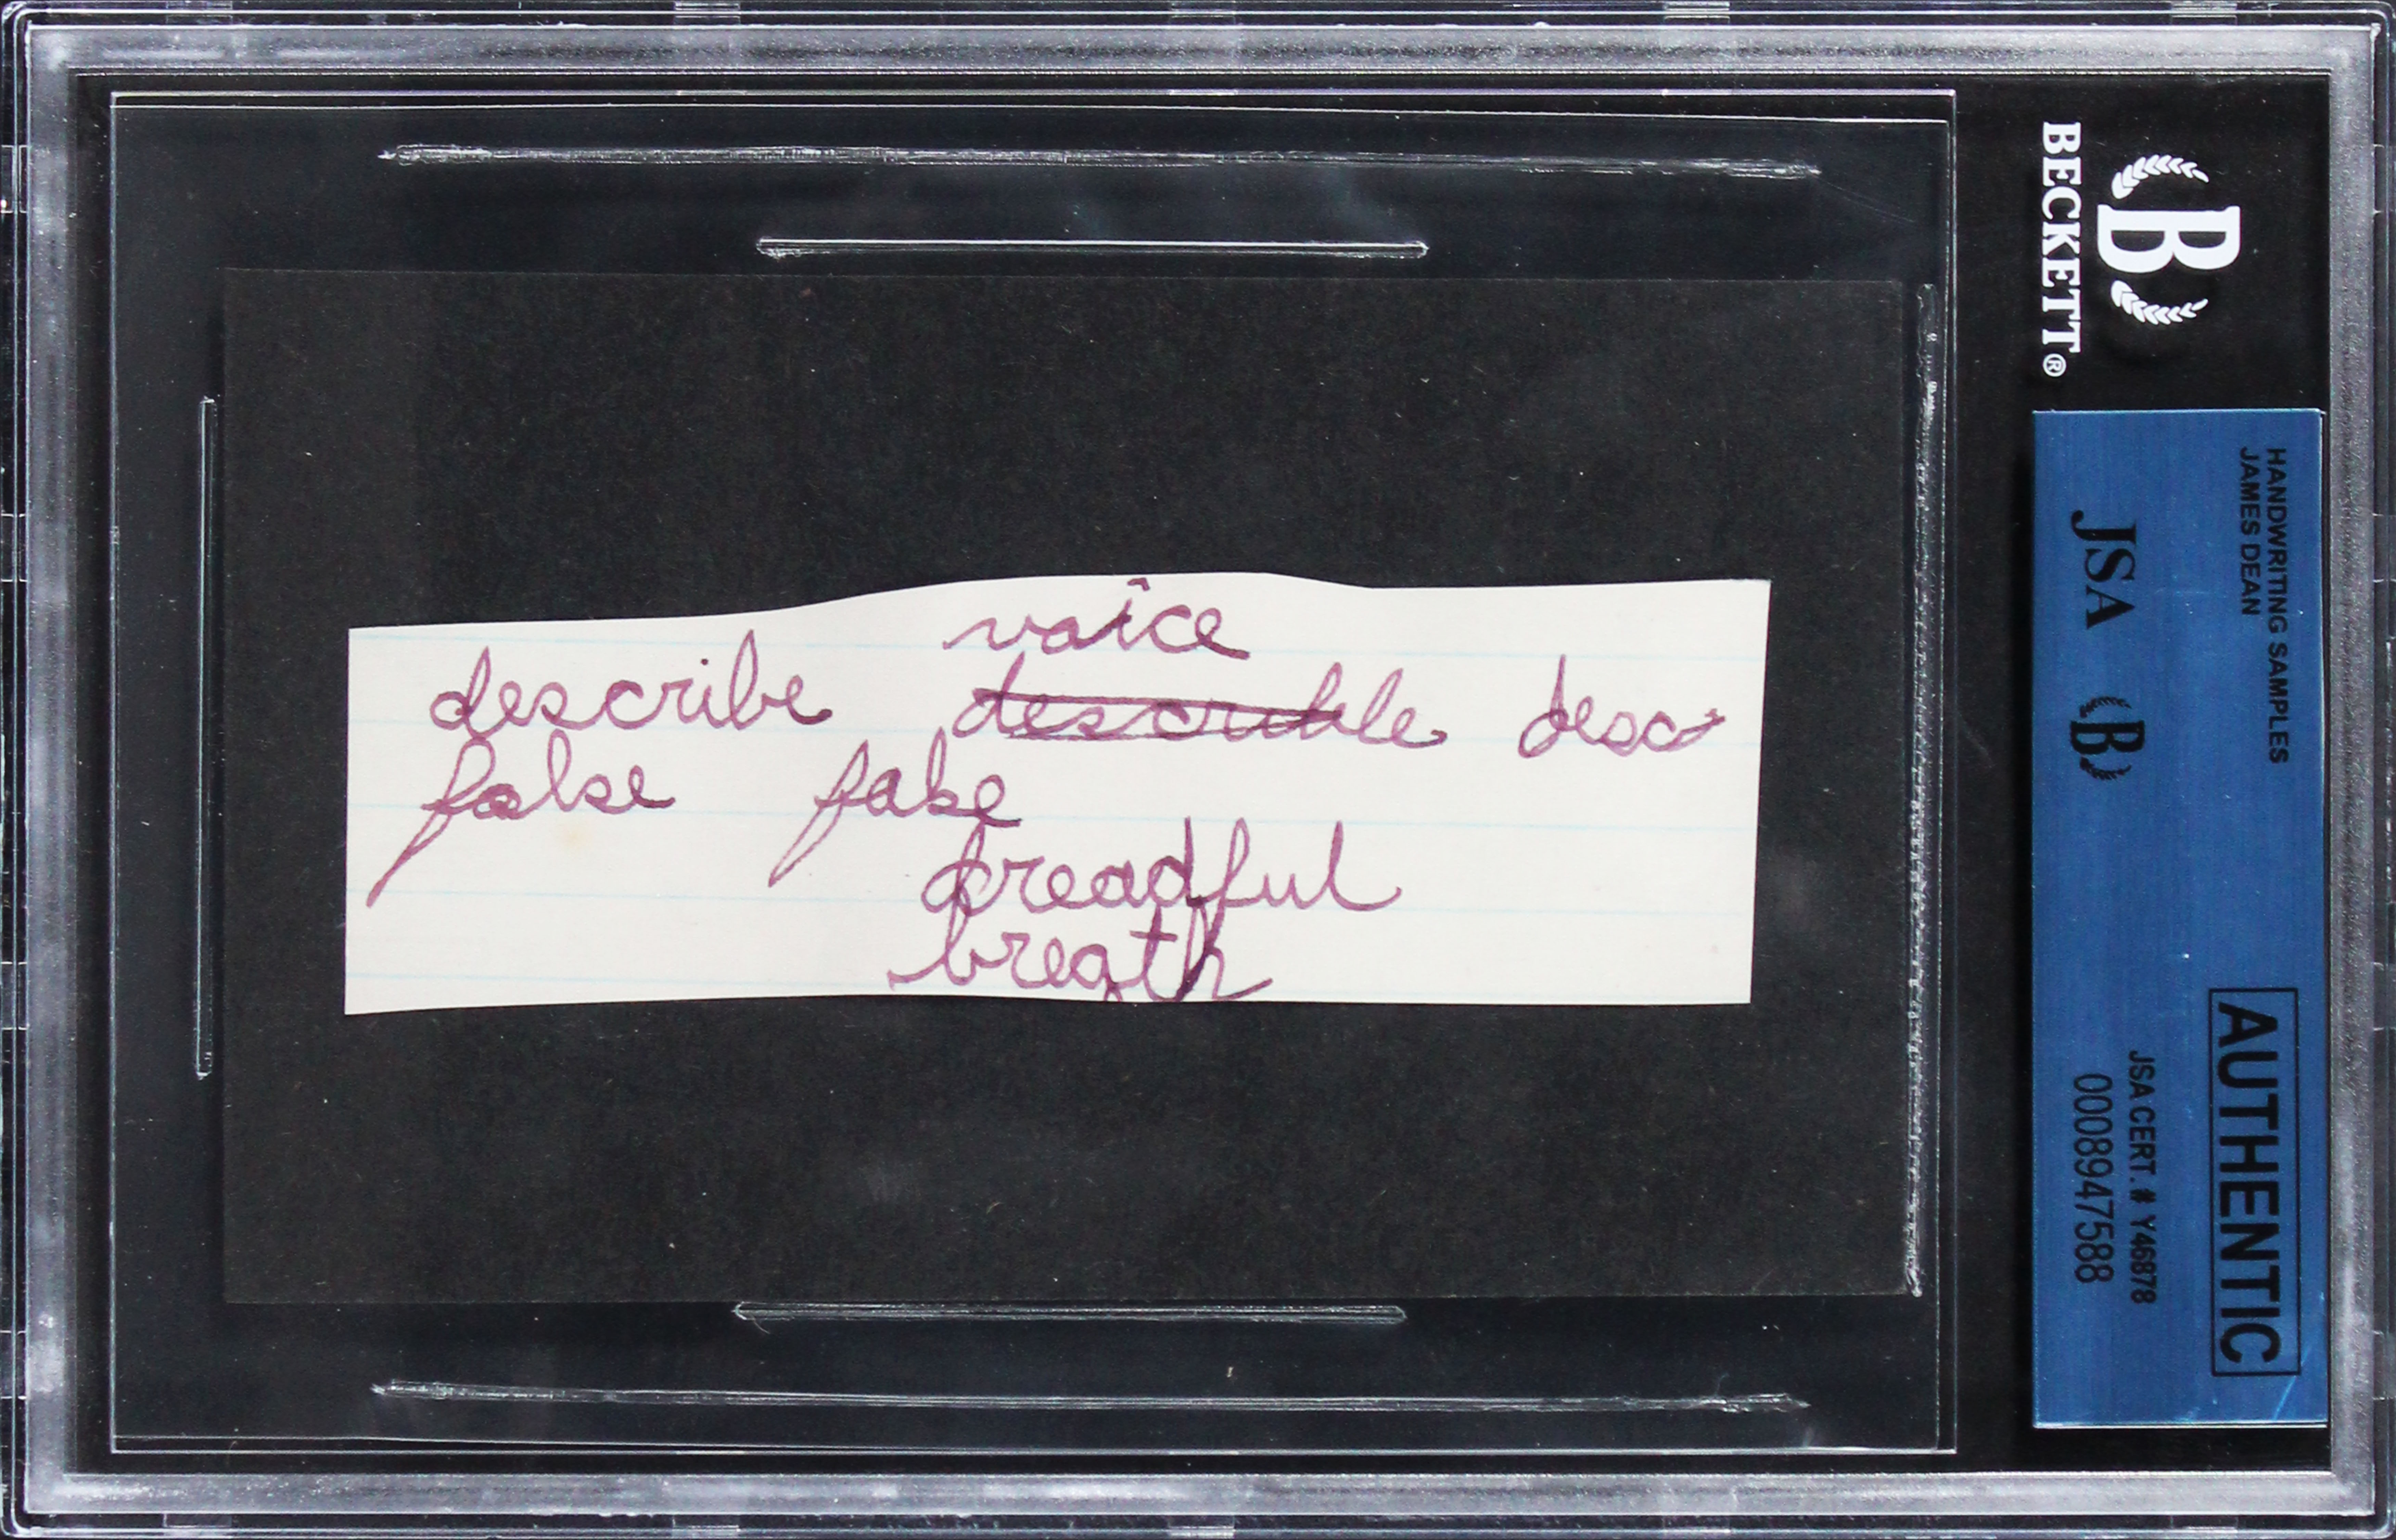 voice
describe describle desc
false fake
dreadful
breath
BECKETT®
HANDWRITING SAMPLES
JAMES DEAN
JSA B
AUTHENTIC
JSA CERT. # Y46878
0008947588
B